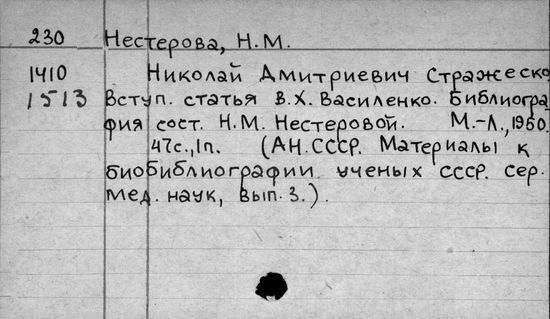 230 Нестерова, Н.М.
1410 Николай Дмитриевич Стражеско
1513 Вступ. статья В.Х. Василенко. Библиогра
фия сост. Н.М. Нестеровой. М.-Л., 1950.
47с., 1п. (АН СССР. Материалы к
биобиблиографии ученых СССР. Сер.
мед. наук, вып. 3.).